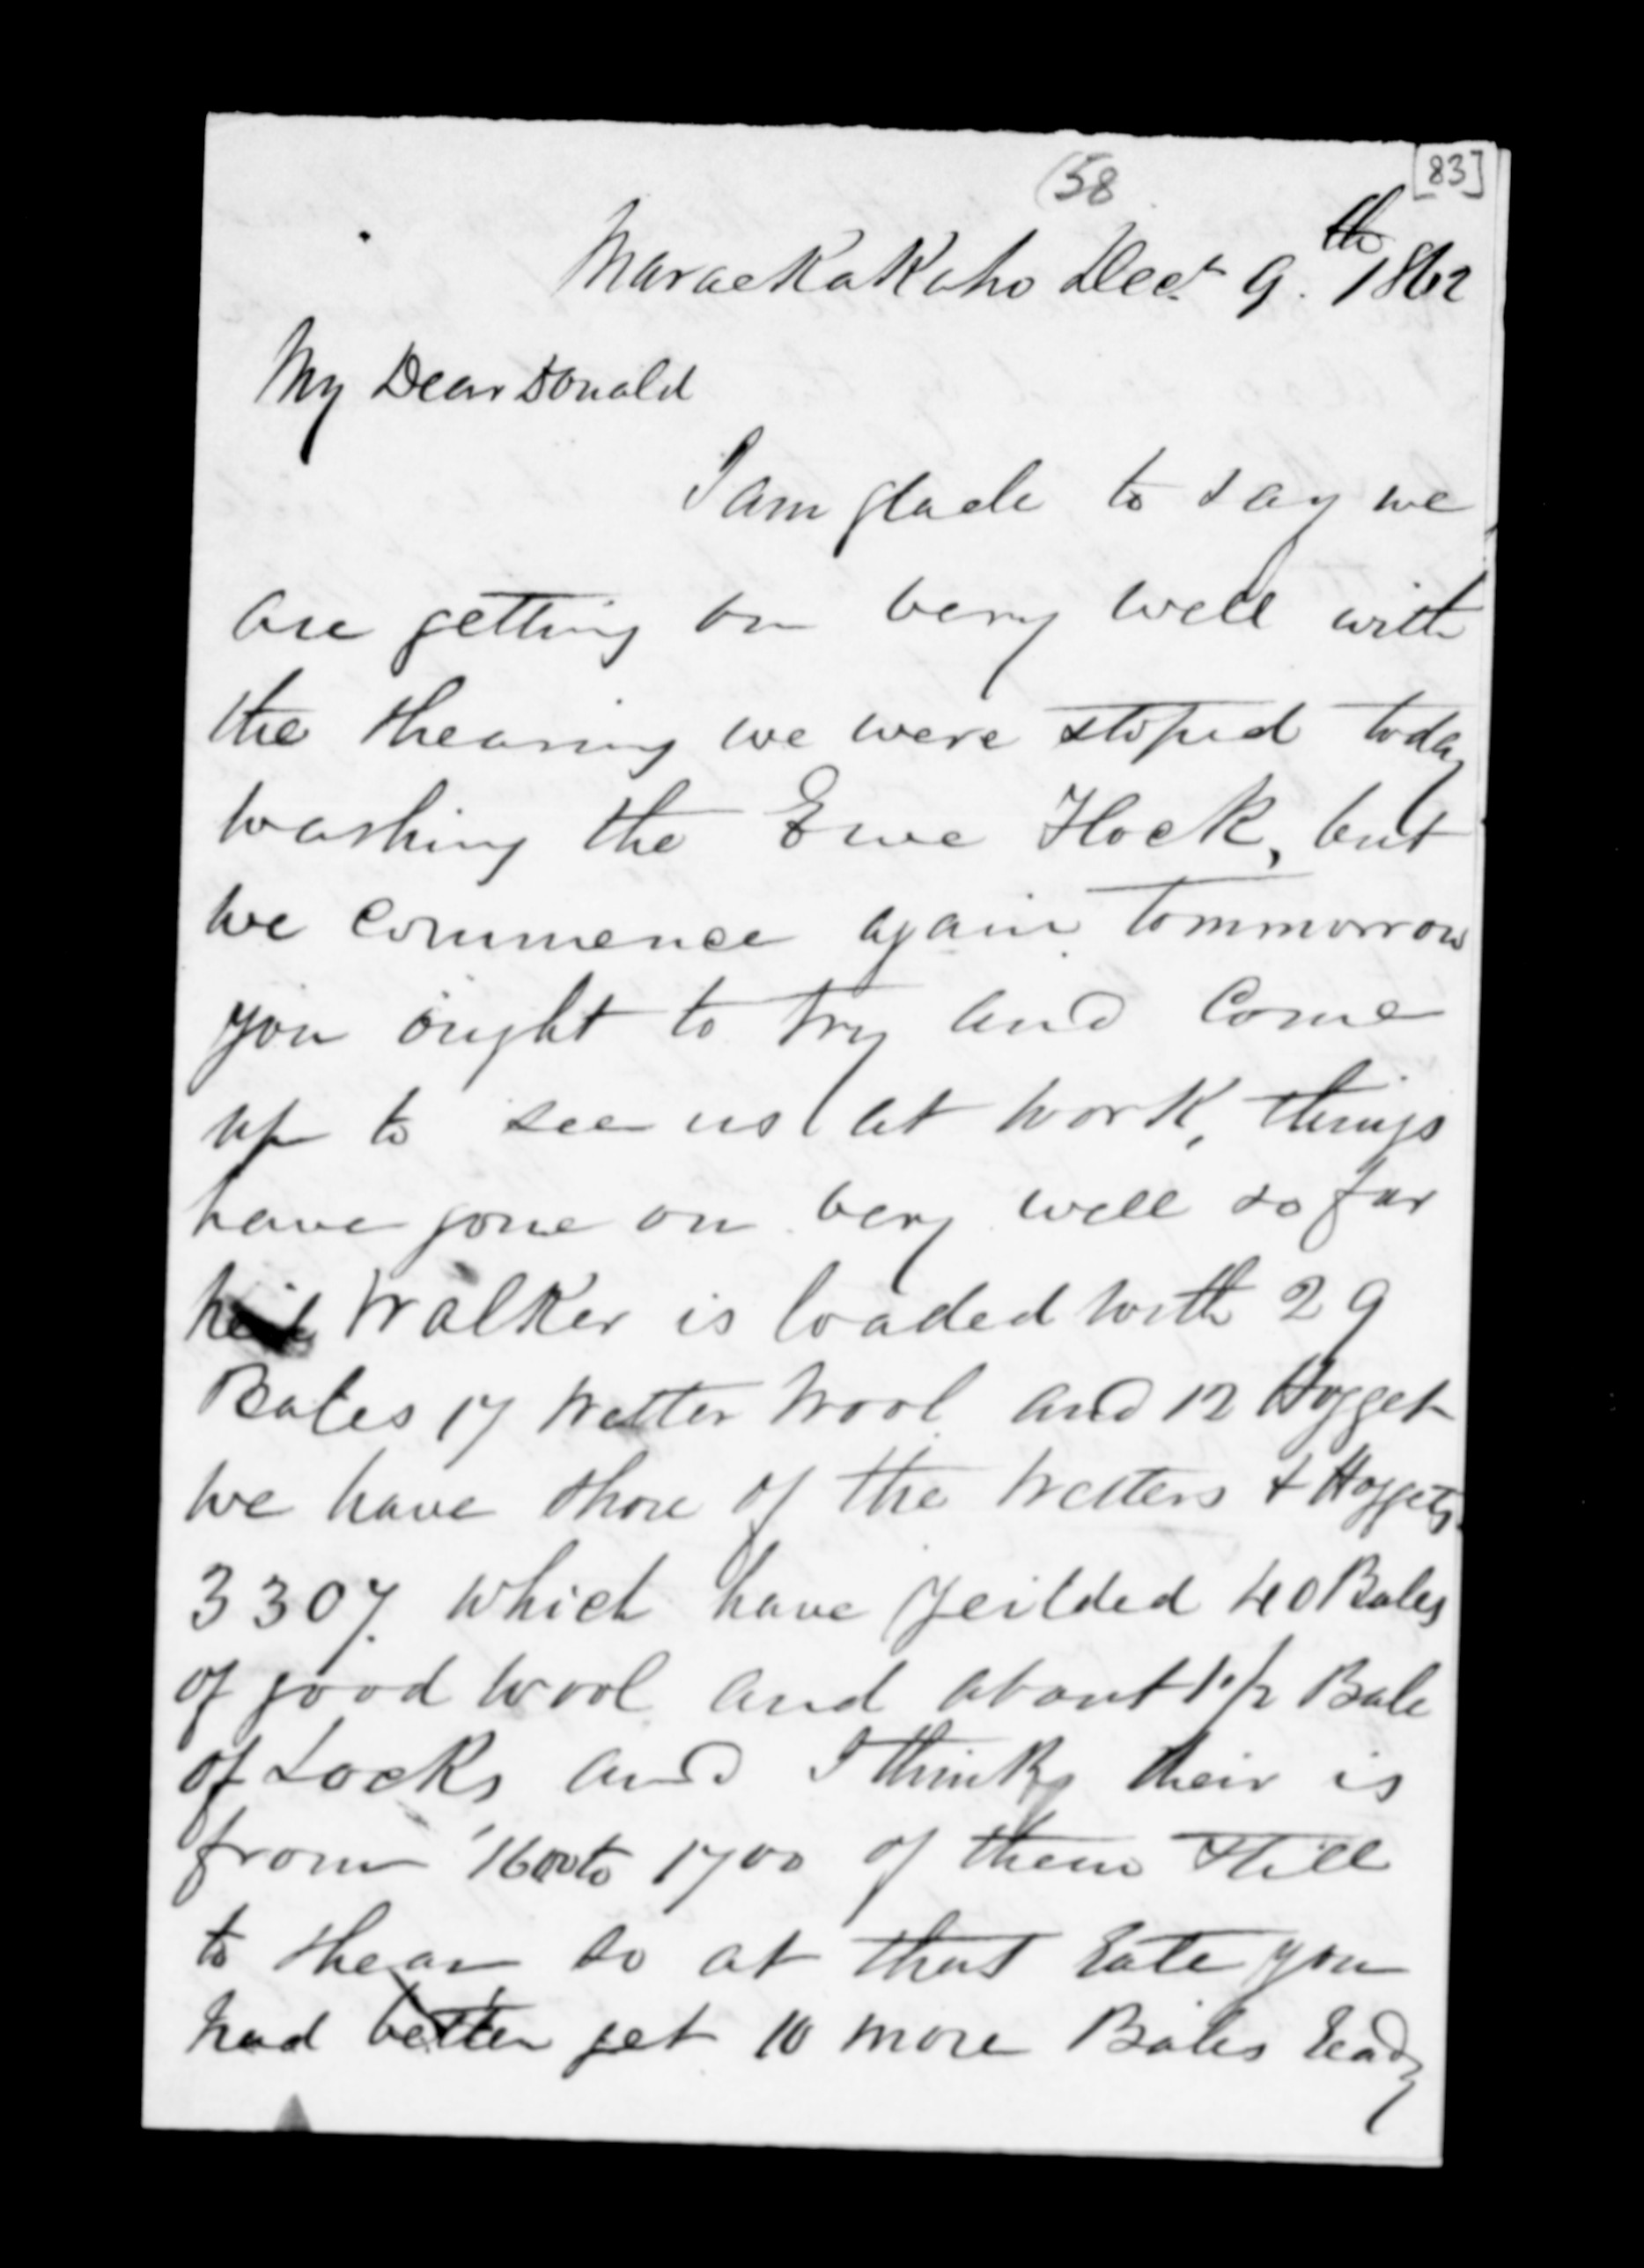 (58
[83]
MaraeKaKaho Decr 9th. 1862
My Dear Donald
I am glade to say we
are getting on very well with
the shearing we were stoped today
washing the Ewe Flock, but
we commence again tommorrow
you ought to try and Come
up to see us at work, things
have gone on very well so far
Walker is loaded with 29
Bales 17 Wetter Wool and 12 Hogget
we have shore of the Wetters & Hoggets
3307. which have yeilded 40 Bales
of good wool and about 1 1/2 Bale
of Locks and I think their is
from 1600 to 1700 of them still
to shear so at that rate you
had better get 10 more Bales ready